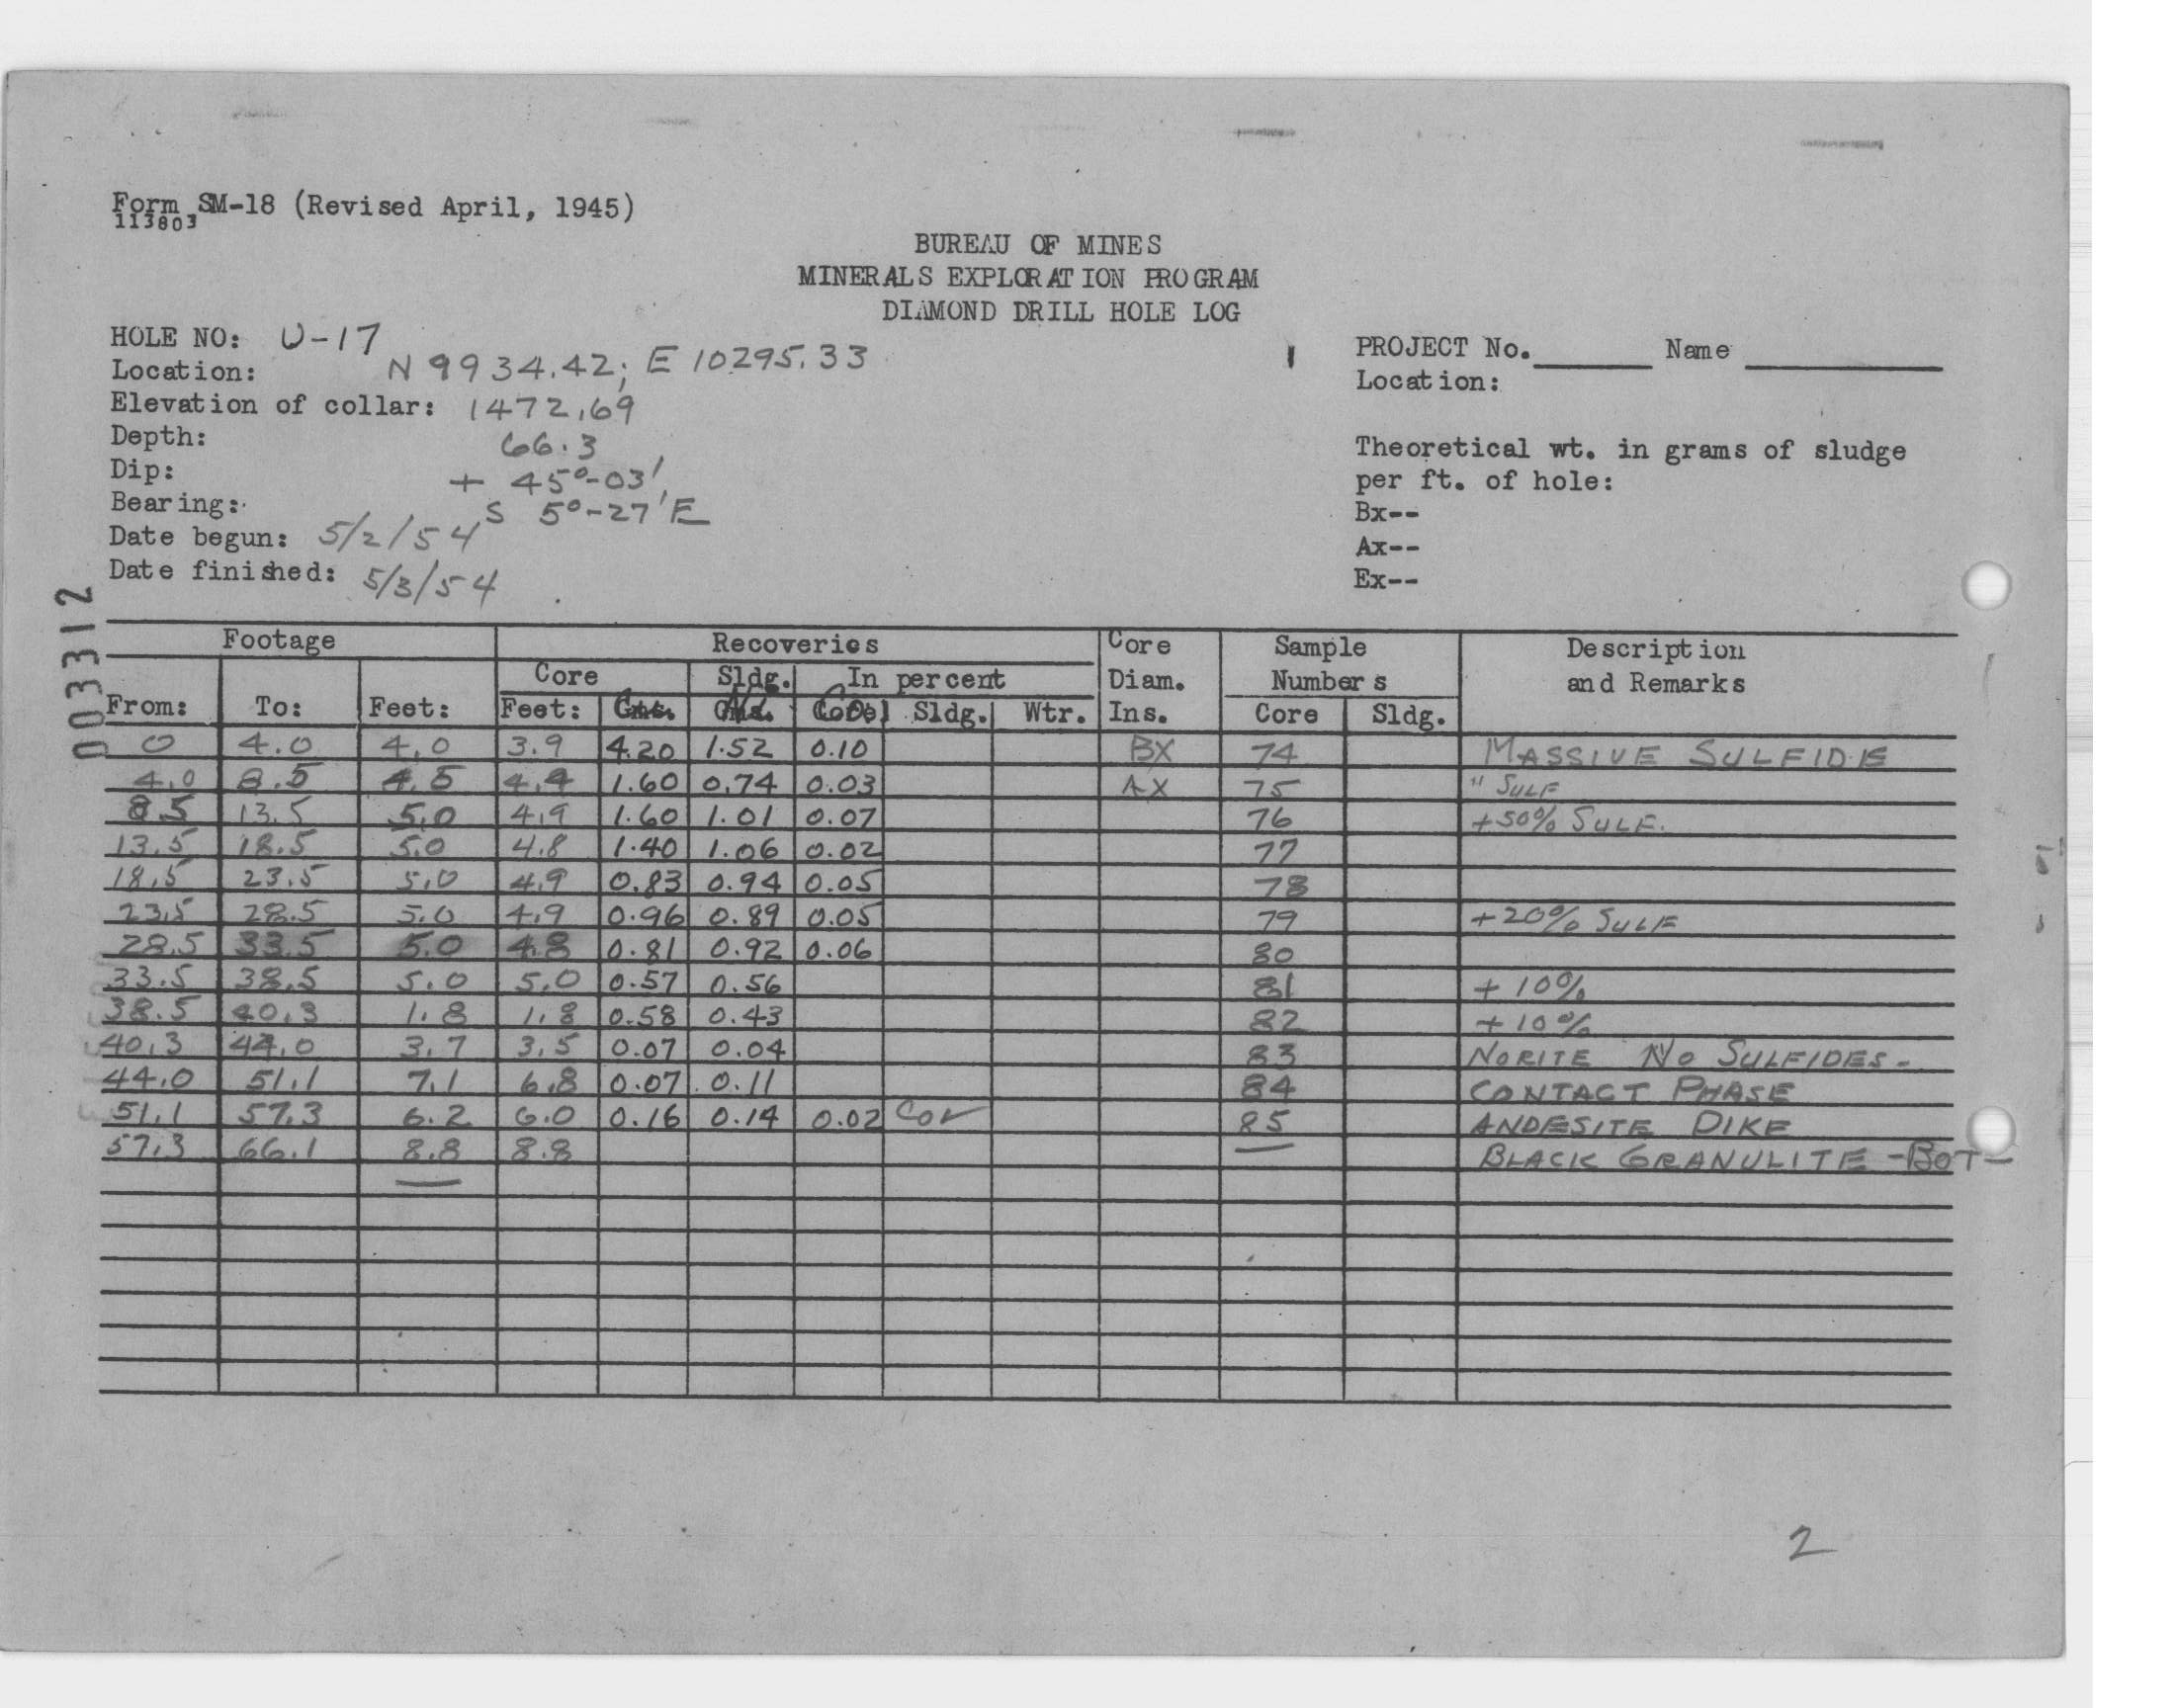 Form SM-18 (Revised April, 1945)
113803
BUREAU OF MINES
MINERALS EXPLORATION PROGRAM
DIAMOND DRILL HOLE LOG
HOLE NO: U-17
Location: N 9934.42; E 10295.33
Elevation of collar: 1472.69
Depth: 66.3
Dip: + 45°-03'
Bearing: S 5°-27' E
Date begun: 5/2/54
Date finished: 5/3/54
PROJECT No. Name
Location:
Theoretical wt. in grams of sludge
per ft. of hole:
Bx--
Ax--
Ex--
003312
Footage Recoveries Core Sample Description
Core Sldg. In percent Diam. Numbers and Remarks
From: To: Feet: Feet: Sldg. Wtr. Ins. Core Sldg.
0 4.0 4.0 3.9 4.20 1.52 0.10 BX 74 MASSIVE SULFIDE
4.0 8.5 4.5 4.4 1.60 0.74 0.03 AX 75 " SULF
8.5 13.5 5.0 4.9 1.60 1.01 0.07 76 +50% SULF.
13.5 18.5 5.0 4.8 1.40 1.06 0.02 77
18.5 23.5 5.0 4.9 0.83 0.94 0.05 78
23.5 28.5 5.0 4.9 0.96 0.89 0.05 79 +20% SULF
28.5 33.5 5.0 4.8 0.81 0.92 0.06 80
33.5 38.5 5.0 5.0 0.57 0.56 81 + 10%
38.5 40.3 1.8 1.8 0.58 0.43 82 + 10%
40.3 44.0 3.7 3.5 0.07 0.04 83 NORITE NO SULFIDES-
44.0 51.1 7.1 6.8 0.07 0.11 84 CONTACT PHASE
51.1 57.3 6.2 6.0 0.16 0.14 0.02 Cor 85 ANDESITE DIKE
57.3 66.1 8.8 8.8 — BLACK GRANULITE -BOT-
2